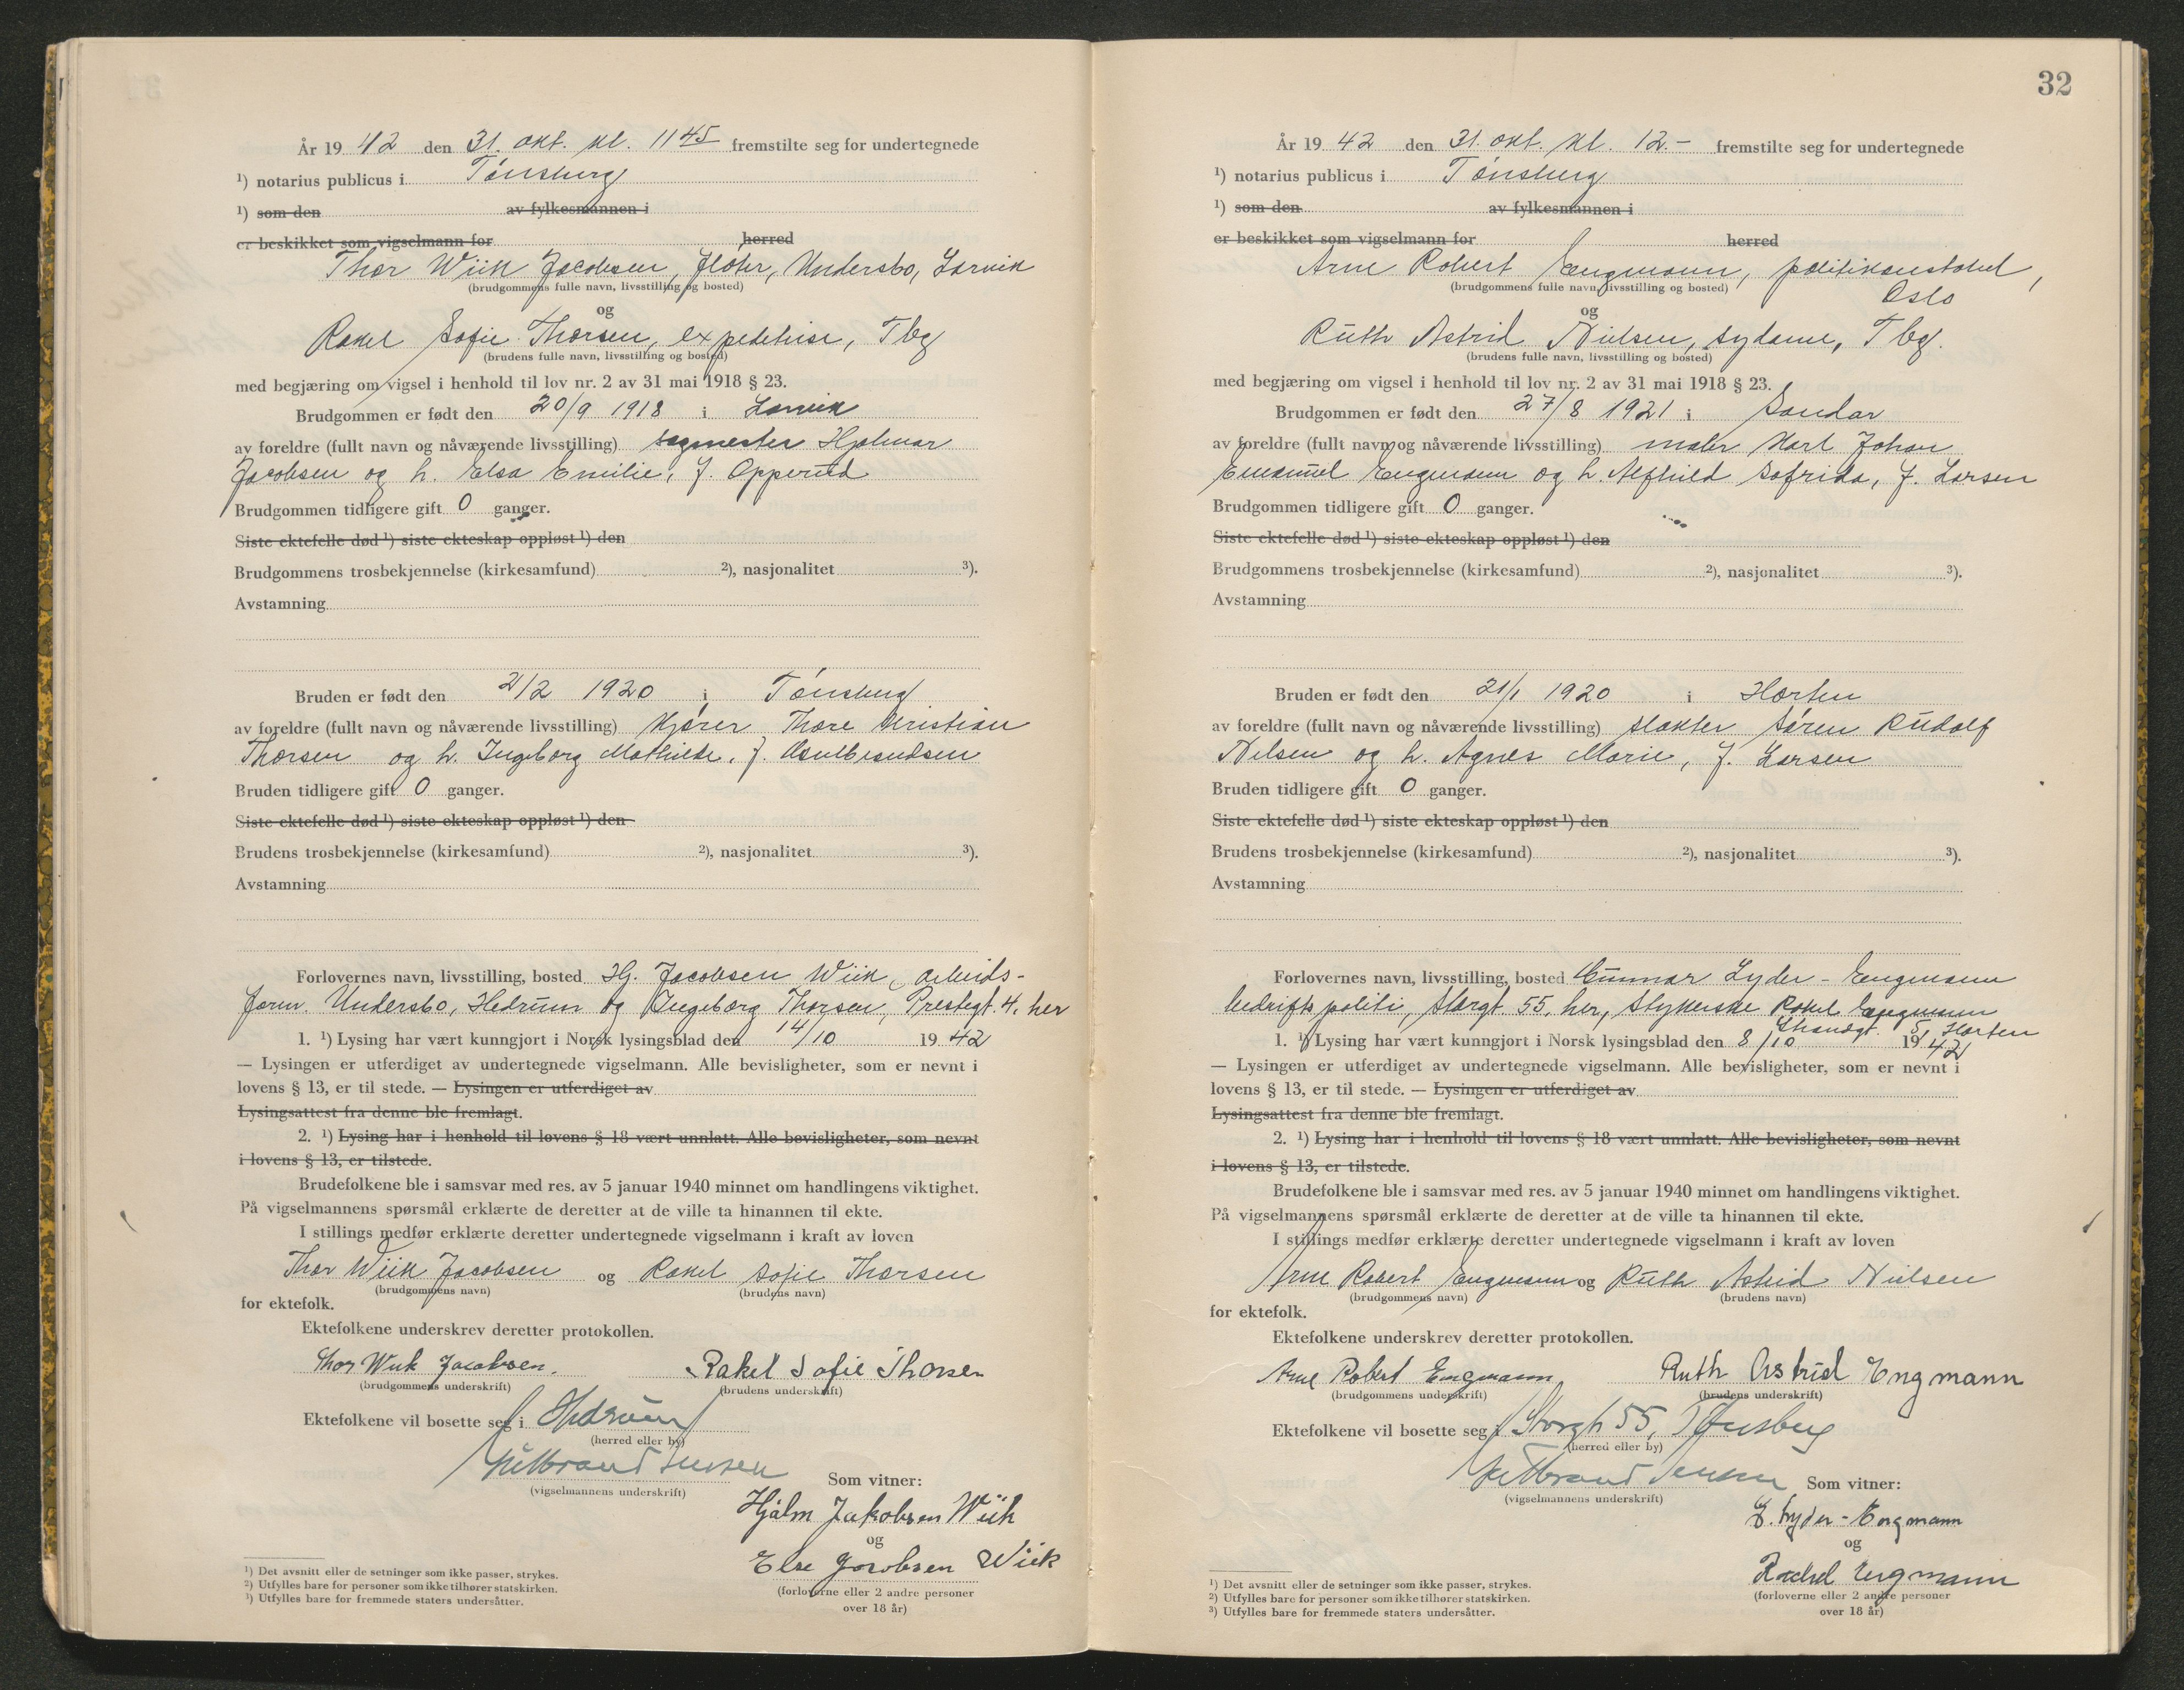 År 19 42 den 31. okt. kl. 11 45 fremstilte seg for undertegnede
¹) notarius publicus i Tønsberg
¹) som den av fylkesmannen i
er beskikket som vigselmann for herred
Thor Wiik Jacobsen, fløter, Undersbo, Larvik
(brudgommens fulle navn, livsstilling og bosted)
og
Rakel Sofie Thorsen, expeditrise, Tbg
(brudens fulle navn, livsstilling og bosted)
med begjæring om vigsel i henhold til lov nr. 2 av 31 mai 1918 § 23.
Brudgommen er født den 20/9 1918 i Larvik
av foreldre (fullt navn og nåværende livsstilling) sagmester Hjalmar
Jacobsen og h. Elsa Emilie, f. Opperud
Brudgommen tidligere gift 0 ganger.
Siste ektefelle død ¹) siste ekteskap oppløst ¹) den
Brudgommens trosbekjennelse (kirkesamfund) ²), nasjonalitet ³).
Avstamning
Bruden er født den 2/2 1920 i Tønsberg
av foreldre (fullt navn og nåværende livsstilling) kjører Thore Kristian
Thorsen og h. Ingeborg Mathilde, f.
Bruden tidligere gift 0 ganger.
Siste ektefelle død ¹) siste ekteskap oppløst ¹) den
Brudens trosbekjennelse (kirkesamfund) ²), nasjonalitet ³).
Avstamning
Forlovernes navn, livsstilling, bosted Hj. Jacobsen Wiik, arbeids-
form. Undersbo, Hedrum og Ingeborg Thorsen, Prestegt. 4, her
1. ¹) Lysing har vært kunngjort i Norsk lysingsblad den 14/10 19 42
— Lysingen er utferdiget av undertegnede vigselmann. Alle bevisligheter, som er nevnt i
lovens § 13, er til stede. — Lysingen er utferdiget av
Lysingsattest fra denne ble fremlagt.
2. ¹) Lysing har i henhold til lovens § 18 vært unnlatt. Alle bevisligheter, som nevnt
i lovens § 13, er tilstede.
Brudefolkene ble i samsvar med res. av 5 januar 1940 minnet om handlingens viktighet.
På vigselmannens spørsmål erklærte de deretter at de ville ta hinannen til ekte.
I stillings medfør erklærte deretter undertegnede vigselmann i kraft av loven
Thor Wiik Jacobsen og Rakel Sofie Thorsen
(brudgommens navn) (brudens navn)
for ektefolk.
Ektefolkene underskrev deretter protokollen.
Thor Wiik Jacobsen. Rakel Sofie Thorsen
(brudgommens underskrift) (brudens underskrift)
Ektefolkene vil bosette seg i Hedrum
(herred eller by)
Som vitner:
(vigselmannens underskrift)
Hjalm Jakobsen Wiik
og
Else Jacobsen Wiik
(forloverne eller 2 andre personer
over 18 år)
¹) Det avsnitt eller de setninger som ikke passer, strykes.
²) Utfylles bare for personer som ikke tilhører statskirken.
³) Utfylles bare for fremmede staters undersåtter.
32
År 19 42 den 31. okt. kl. 12.- fremstilte seg for undertegnede
¹) notarius publicus i Tønsberg
¹) som den av fylkesmannen i
er beskikket som vigselmann for herred
Arne Robert Engmann, politikonstabel,
(brudgommens fulle navn, livsstilling og bosted)
Oslo
og
Ruth Astrid Nielsen, sydame, Tbg.
(brudens fulle navn, livsstilling og bosted)
med begjæring om vigsel i henhold til lov nr. 2 av 31 mai 1918 § 23.
Brudgommen er født den 27/8 1921 i Sandar
av foreldre (fullt navn og nåværende livsstilling) maler Karl Johan
Emanuel Engmann og h. Alfhild Sofrida, f. Larsen
Brudgommen tidligere gift 0 ganger.
Siste ektefelle død ¹) siste ekteskap oppløst ¹) den
Brudgommens trosbekjennelse (kirkesamfund) ²), nasjonalitet ³).
Avstamning
Bruden er født den 21/1 1920 i Horten
av foreldre (fullt navn og nåværende livsstilling) slakter Søren Rudolf
Nilsen og h. Agnes Marie, f. Larsen
Bruden tidligere gift 0 ganger.
Siste ektefelle død ¹) siste ekteskap oppløst ¹) den
Brudens trosbekjennelse (kirkesamfund) ²), nasjonalitet ³).
Avstamning
Forlovernes navn, livsstilling, bosted Gunnar Lyder-Engmann
bedriftspoliti, Storgt. 55, her, Rakel Engmann
Strandgt. 5, Horten
1. ¹) Lysing har vært kunngjort i Norsk lysingsblad den 8/10 19 42
— Lysingen er utferdiget av undertegnede vigselmann. Alle bevisligheter, som er nevnt i
lovens § 13, er til stede. — Lysingen er utferdiget av
Lysingsattest fra denne ble fremlagt.
2. ¹) Lysing har i henhold til lovens § 18 vært unnlatt. Alle bevisligheter, som nevnt
i lovens § 13, er tilstede.
Brudefolkene ble i samsvar med res. av 5 januar 1940 minnet om handlingens viktighet.
På vigselmannens spørsmål erklærte de deretter at de ville ta hinannen til ekte.
I stillings medfør erklærte deretter undertegnede vigselmann i kraft av loven
Arne Robert Engmann og Ruth Astrid Nielsen
(brudgommens navn) (brudens navn)
for ektefolk.
Ektefolkene underskrev deretter protokollen.
Arne Robert Engmann Ruth Astrid Engmann
(brudgommens underskrift) (brudens underskrift)
Ektefolkene vil bosette seg i Storgt 55, Tønsberg
(herred eller by)
Som vitner:
(vigselmannens underskrift)
G. Lyder-Engmann
og
Rachel Engmann
(forloverne eller 2 andre personer
over 18 år)
¹) Det avsnitt eller de setninger som ikke passer, strykes.
²) Utfylles bare for personer som ikke tilhører statskirken.
³) Utfylles bare for fremmede staters undersåtter.